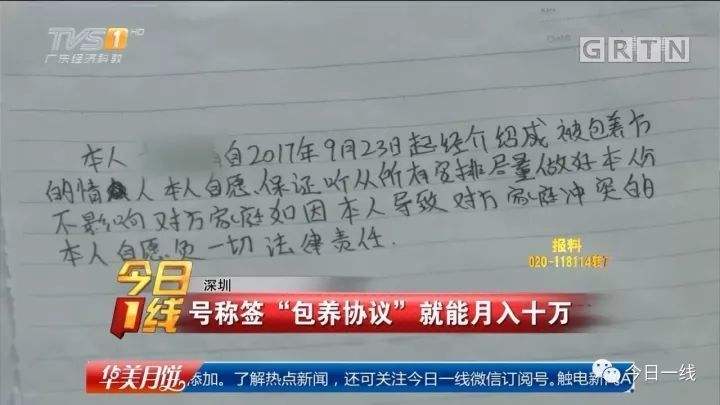 TVS1 HD
广东经济科教
GRTN
本人 自2017年9月23日起经介绍成被包养方
的情人本人自愿.保证听从所有安排尽量做好本份
不影响对方家庭如因本人导致对方家庭冲突的
本人自愿 一切法律责任.
报料
020-118114转7
今日
1线
深圳
号称签“包养协议”就能月入十万
华美月饼
添加。了解热点新闻，还可关注今日一线微信订阅号。触电新闻A
今日一线